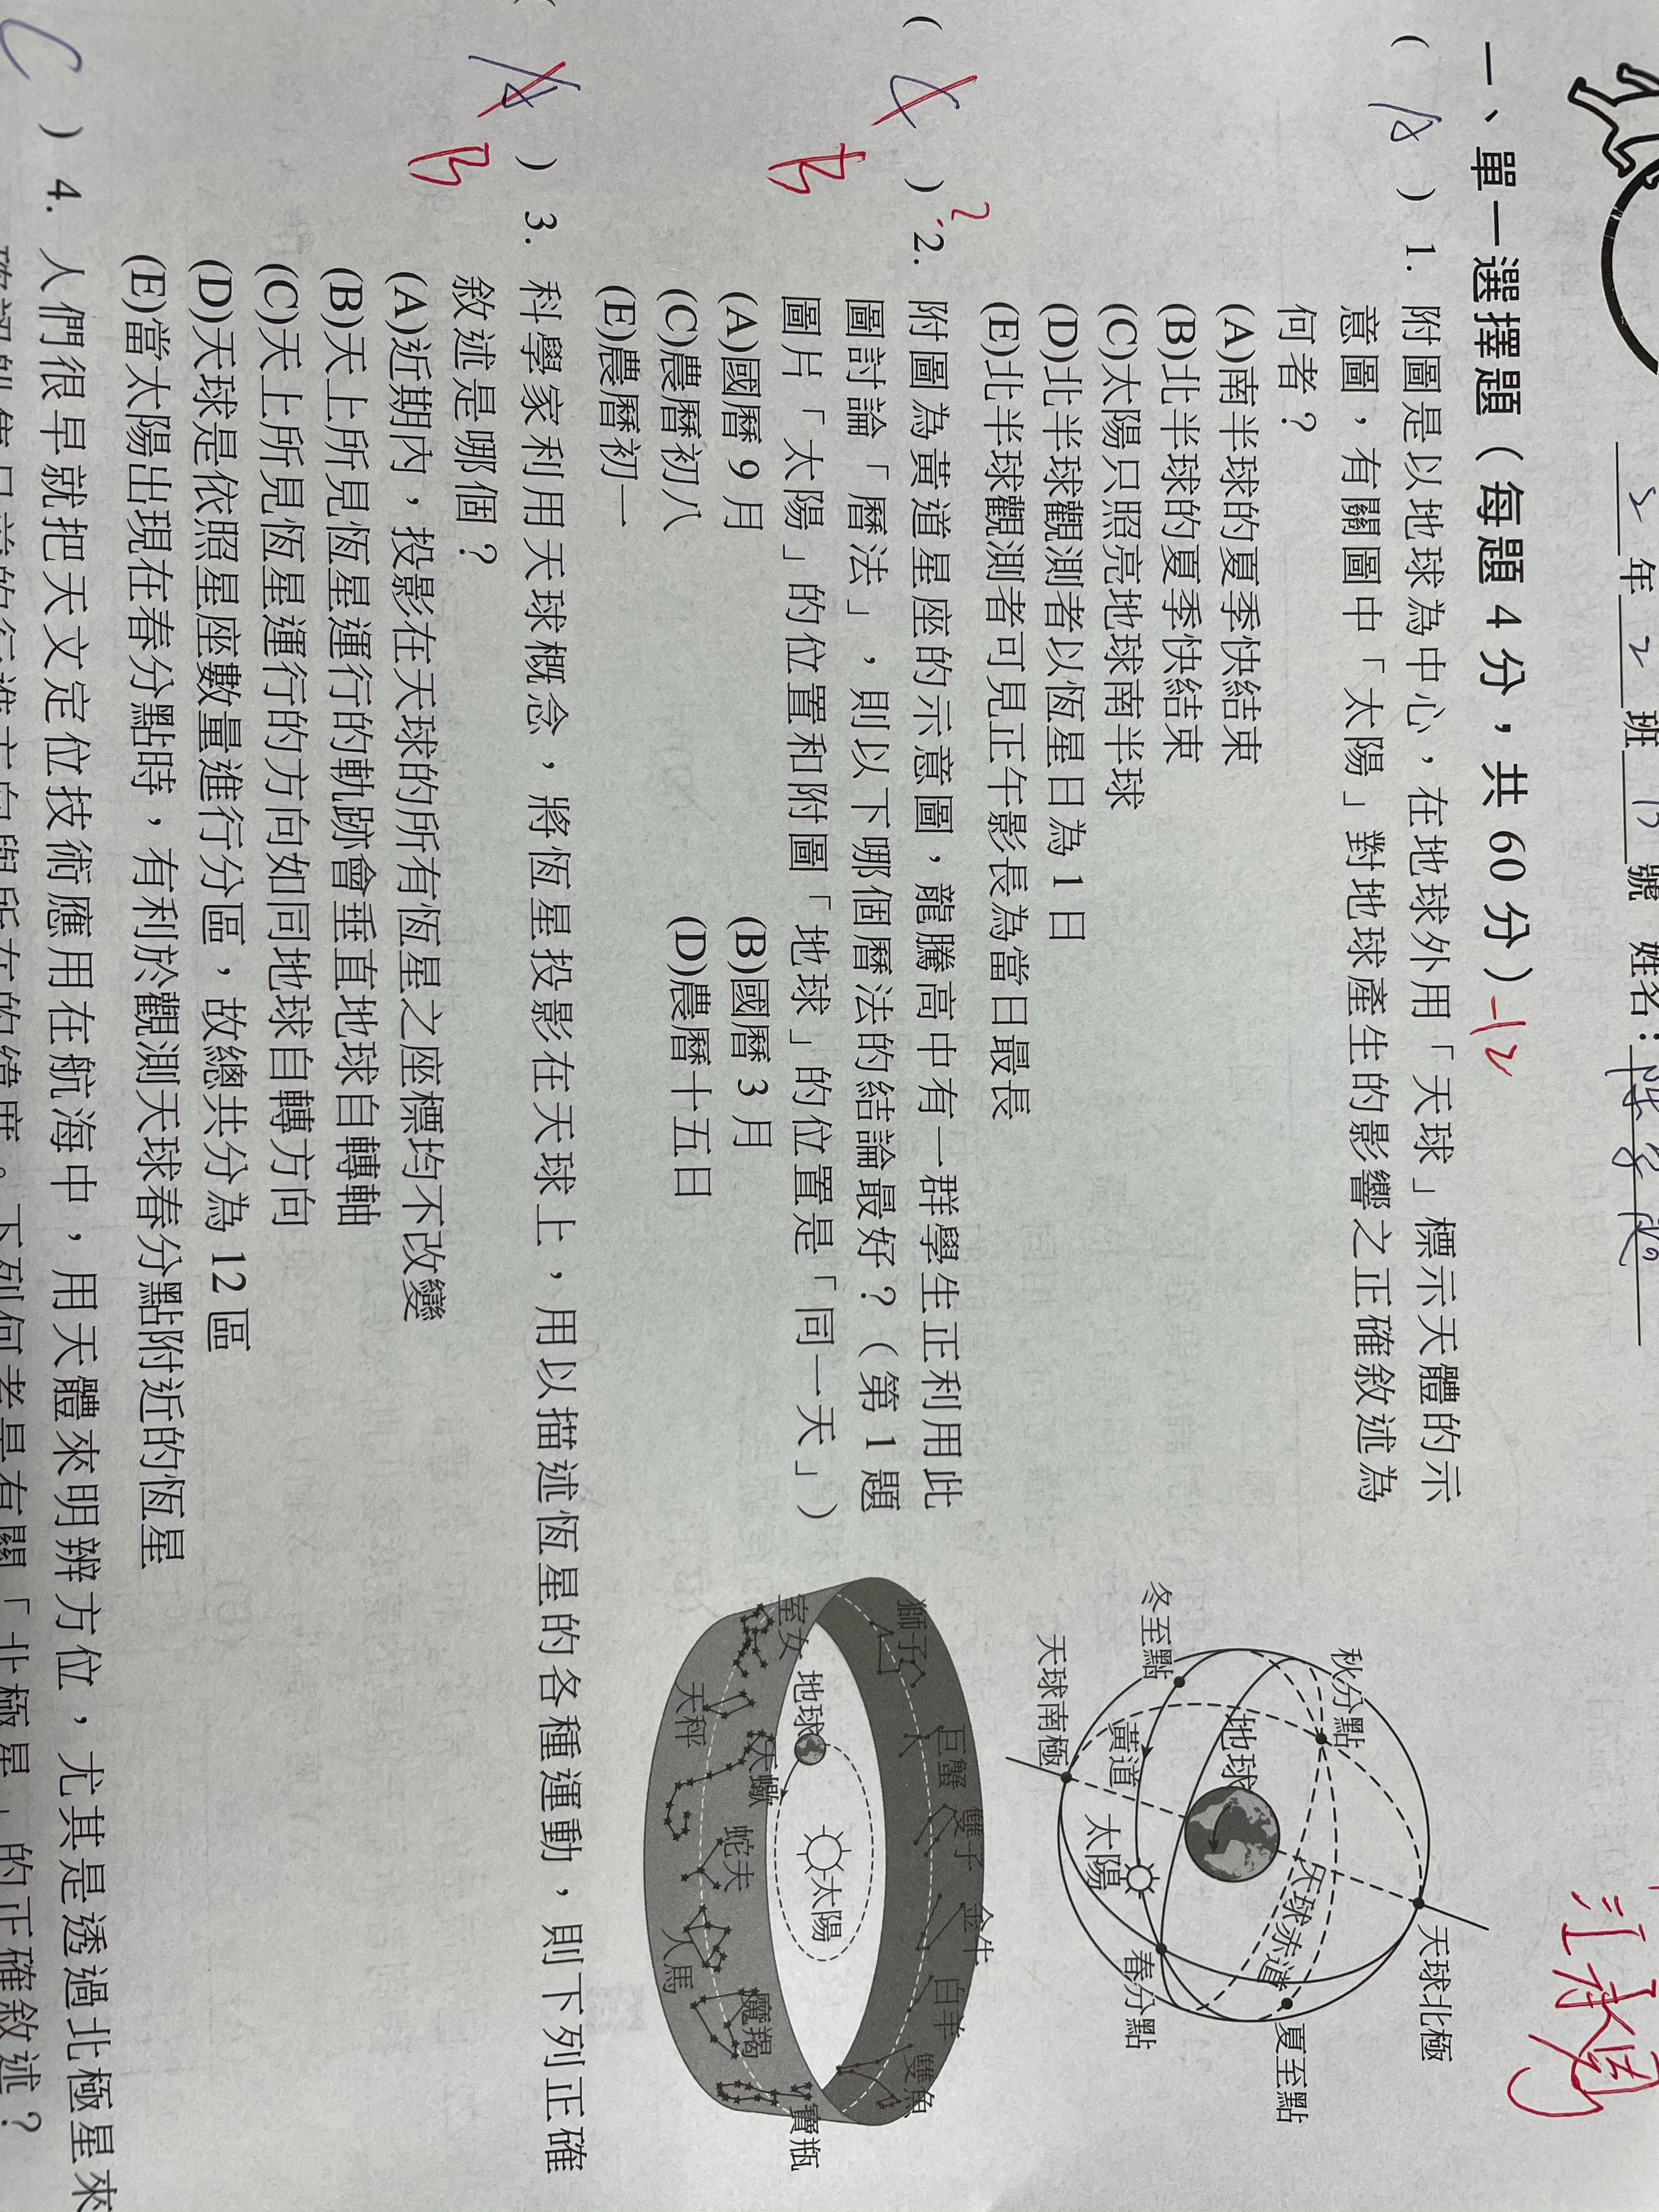 2年2班13號 姓名：
一、單一選擇題（每題 4 分，共 60 分）-12
( A ) 1. 附圖是以地球為中心，在地球外用「天球」標示天體的示
意圖，有關圖中「太陽」對地球產生的影響之正確敘述為
何者？
(A)南半球的夏季快結束
(B)北半球的夏季快結束
(C)太陽只照亮地球南半球
(D)北半球觀測者以恆星日為 1 日
(E)北半球觀測者可見正午影長為當日最長
天球北極
夏至點
秋分點
地球
天球赤道
冬至點
黃道
太陽
春分點
天球南極
( ) 2. 附圖為黃道星座的示意圖，龍騰高中有一群學生正利用此
圖討論「曆法」，則以下哪個曆法的結論最好？（第 1 題
圖片「太陽」的位置和附圖「地球」的位置是「同一天」）
(A)國曆 9 月 (B)國曆 3 月
(C)農曆初八 (D)農曆十五日
(E)農曆初一
B
獅子
巨蟹
雙子
金牛
白羊
雙魚
室女
地球
太陽
寶瓶
天秤
天蠍
蛇夫
人馬
魔羯
( A ) 3. 科學家利用天球概念，將恆星投影在天球上，用以描述恆星的各種運動，則下列正確
敘述是哪個？
B
(A)近期內，投影在天球的所有恆星之座標均不改變
(B)天上所見恆星運行的軌跡會垂直地球自轉軸
(C)天上所見恆星運行的方向如同地球自轉方向
(D)天球是依照星座數量進行分區，故總共分為 12 區
(E)當太陽出現在春分點時，有利於觀測天球春分點附近的恆星
( C ) 4. 人們很早就把天文定位技術應用在航海中，用天體來明辨方位，尤其是透過北極星來
所在的緯度。下列何者是有關「北極星」的正確敘述？